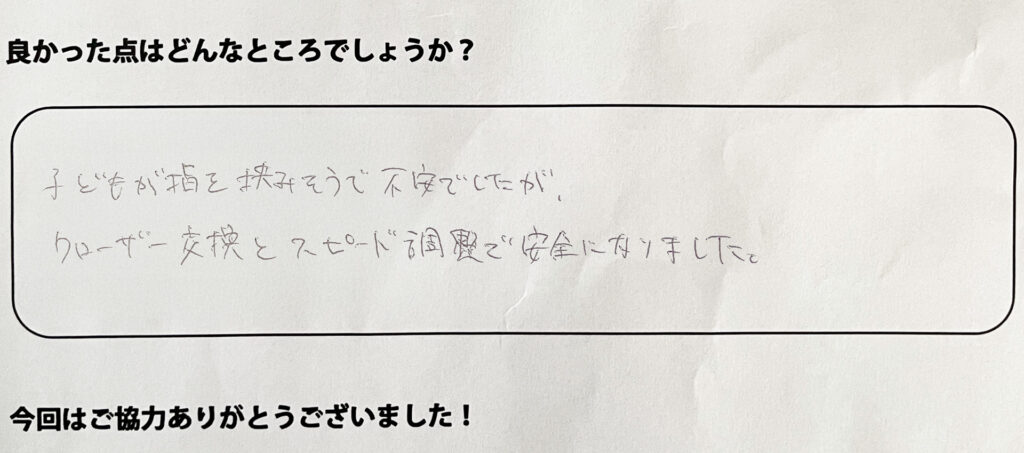 良かった点はどんなところでしょうか？
子どもが指を挟みそうで不安でしたが、
クローザー交換とスピード調整で安全になりました。
今回はご協力ありがとうございました！